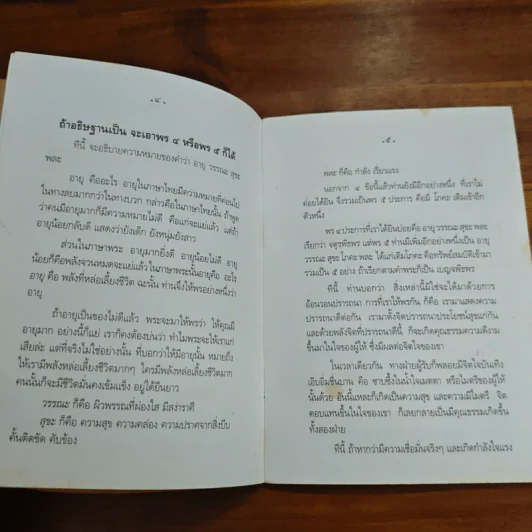 -๔-
ถ้าอธิษฐานเป็น จะเอาพร ๔ หรือพร ๕ ก็ได้
ทีนี้ จะอธิบายความหมายของคำว่า อายุ วรรณะ สุขะ
พละ
อายุ คืออะไร อายุในภาษาไทยมีความหมายที่ค่อนไป
ในทางลบมากกว่าในทางบวก กล่าวคือในภาษาไทยนั้น ถ้าพูด
ว่าคนมีอายุมากก็มีความหมายไม่ดี คือแก่จะแย่แล้ว แต่ถ้า
อายุน้อยกลับดี แสดงว่ายังเด็ก ยังหนุ่มยังสาว
ส่วนในภาษาพระ อายุมากยิ่งดี อายุน้อยไม่ดี อายุ
น้อยก็คือพลังจวนหมดจะแย่แล้ว ในภาษาพระนั้นอายุคือ อะไร
อายุ คือ พลังที่หล่อเลี้ยงชีวิต ฉะนั้น ท่านจึงให้พรอย่างหนึ่งว่า
อายุ
ถ้าอายุเป็นของไม่ดีแล้ว พระจะมาให้พรว่า ให้คุณมี
อายุมาก อย่างนี้ก็แย่ เราก็คงต้องบ่นว่า ทำไมพระจะให้เราแก่
เสียล่ะ แต่ที่จริงไม่ใช่อย่างนั้น ที่บอกว่าให้มีอายุนั้น หมายถึง
ให้เรามีพลังหล่อเลี้ยงชีวิตมากๆ ใครมีพลังหล่อเลี้ยงชีวิตมาก
คนนั้นก็จะมีชีวิตมั่นคงเข้มแข็ง อยู่ได้ยืนยาว
วรรณะ ก็คือ ผิวพรรณที่ผ่องใส มีสง่าราศี
สุขะ ก็คือ ความสุข ความคล่อง ความปราศจากสิ่งบีบ
คั้นติดขัด คับข้อง
-๕-
พละ ก็คือ กำลัง เรี่ยวแรง
นอกจาก ๔ ข้อนี้แล้วท่านยังมีอีกอย่างหนึ่ง ที่เราไม่
ค่อยได้ยิน จึงรวมเป็นพร ๕ ประการ คือมี โภคะ เติมเข้าอีก
ตัวหนึ่ง
พร ๔ ประการที่เราได้ยินบ่อยคือ อายุ วรรณะ สุขะ พละ
เรียกว่า จตุรพิธพร แต่พร ๕ ท่านมีเพิ่มอีกอย่างหนึ่งเป็น อายุ
วรรณะ สุขะ โภคะ พละ ได้แก่เติมโภคะ คือทรัพย์สมบัติเข้ามา
รวมเป็น ๕ อย่าง ถ้าเรียกตามคำพระก็เป็น เบญจพิธพร
ทีนี้ ท่านบอกว่า สิ่งเหล่านี้มิใช่จะได้มาด้วยการ
อ้อนวอนปรารถนา การที่เราให้พรกัน ก็คือ เรามาแสดงความ
ปรารถนาดีต่อกัน เรามาตั้งจิตปรารถนาประโยชน์สุขแก่กัน
และด้วยพลังจิตที่ปรารถนาดีนี้ ก็จะเกิดคุณธรรมความดีงาม
ขึ้นมาในใจของผู้ให้ ซึ่งมีผลต่อจิตใจของเขา
ในเวลาเดียวกัน ทางฝ่ายผู้รับก็พลอยมีจิตใจบันเทิง
เอิบอิ่มชื่นบาน คือ ซาบซึ้งในน้ำใจเมตตา หรือไมตรีของผู้ให้
นั้นด้วย อันนี้แหละก็เกิดเป็นความสุข และความมีไมตรี จิต
ตอบแทนขึ้นในใจของเขา ก็เลยกลายเป็นมีคุณธรรมเกิดขึ้น
ทั้งสองฝ่าย
ทีนี้ ถ้าหากว่ามีความเชื่อมั่นจริงๆ และเกิดกำลังใจแรง